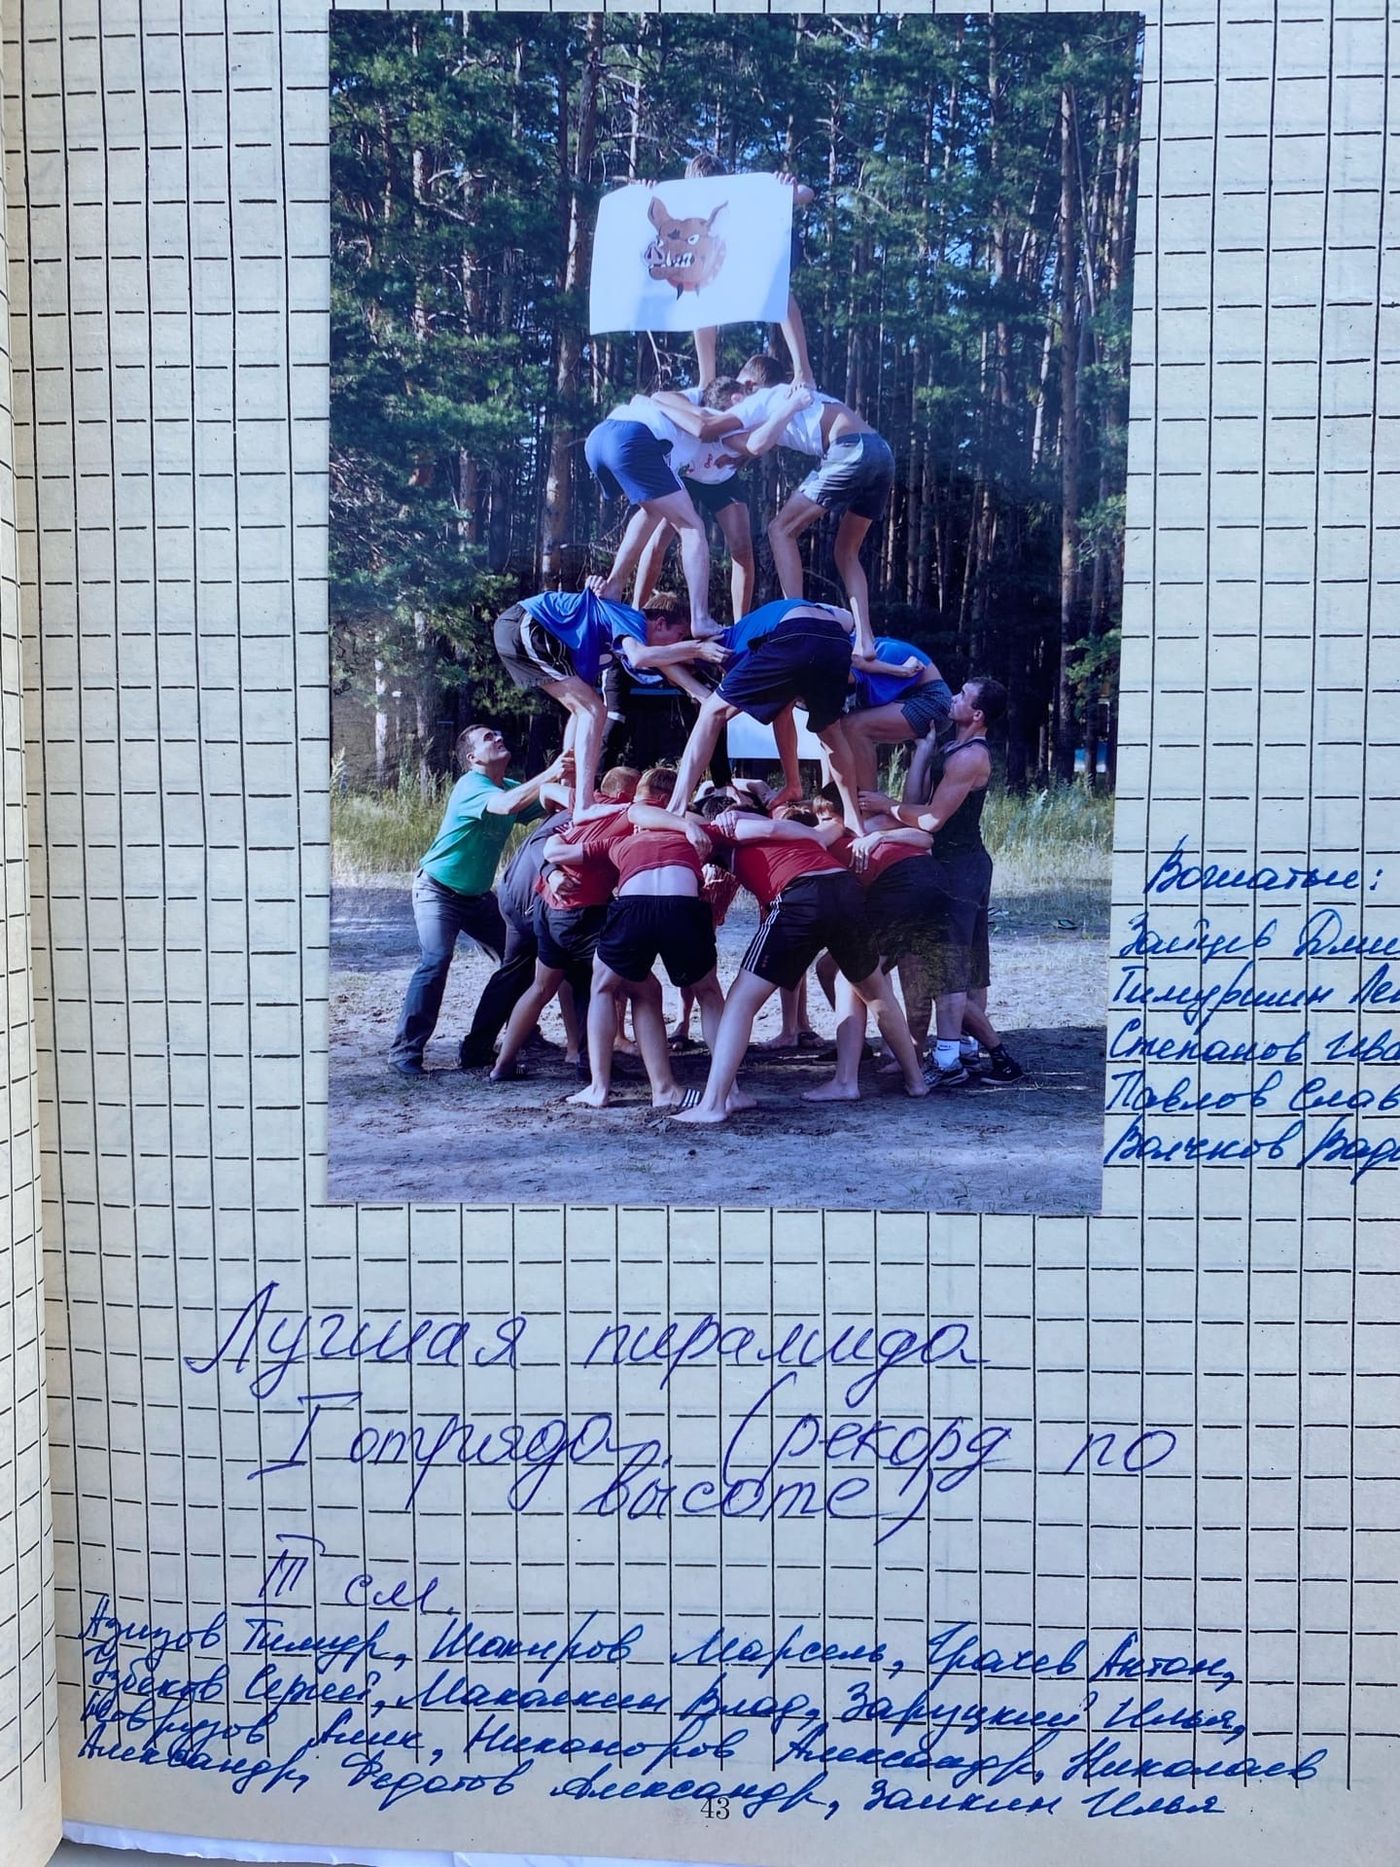 Вожатые:
Зайцев
Тимуршин
Степанов
Павлов Слав
Волчков
Лучшая пирамида
I отряда. (рекорд по
высоте)
III см.
Азизов Тимур, Шакиров Марсель, Грачев Антон,
Узбеков Сергей, Макалкин Влад, Заруцкий Илья,
Новрузов Алик, Никаноров Александр, Николаев
Александр, Федотов Александр, Заикин Илья
43